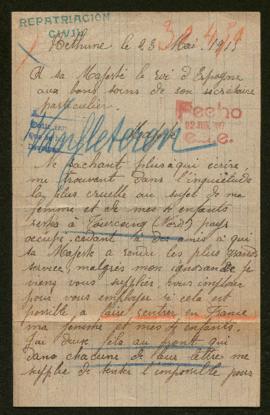 REPATRIACIÓN
CIVIL
Béthune le 23 Mai 1917
A sa Majesté le roi d'Espagne
aux bons soins de son secrétaire
particulier.
Fecho
Majesté
Ne sachant plus à qui écrire,
me trouvant dans l'inquiétude
la plus cruelle au sujet de ma
femme et de mes enfants
restés à Tourcoing (Nord) pays
occupé, à qui
sa Majesté a rendu les plus grands
services, malgrés mon ignorance je
viens vous supplier, vous implorer
pour vous employer si cela est
possible à faire rentrer en France
ma femme et mes enfants.
J'ai deux fils au front qui
dans chacune de leur lettre me
supplie de tenter l'impossible pour